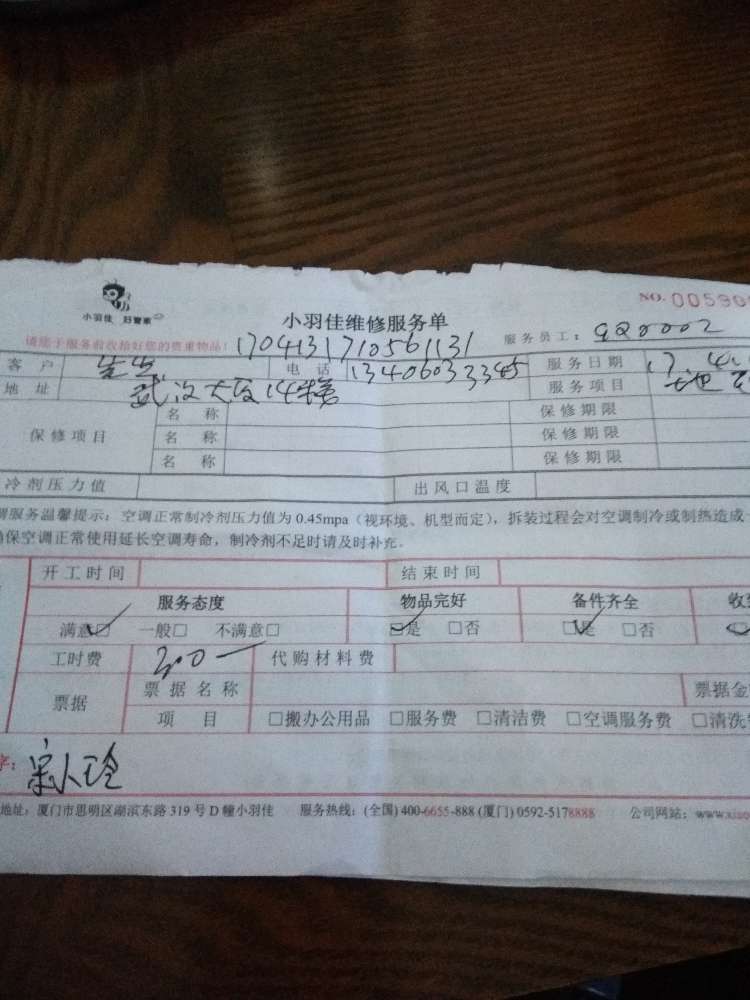 小羽佳 好管家
小羽佳维修服务单
NO. 00590
请您于服务前收拾好您的贵重物品!
1704131710561131
服务员工: 920002
客 户
电 话 13406033345
服务日期 17.4.
地 址
武汉大厦14楼
服务项目
保修项目
名 称
保修期限
名 称
保修期限
名 称
保修期限
冷剂压力值
出风口温度
调服务温馨提示: 空调正常制冷剂压力值为 0.45mpa (视环境、机型而定), 拆装过程会对空调制冷或制热造成
确保空调正常使用延长空调寿命, 制冷剂不足时请及时补充。
开工时间
结束时间
服务态度
物品完好
备件齐全
满意☑ 一般□ 不满意□
☑是 □否
☑是 □否
工时费 300一
代购材料费
票据
票 据 名 称
票据金
项 目
□搬办公用品 □服务费 □清洁费 □空调服务费 □清洗
字:
地址: 厦门市思明区湖滨东路 319 号 D 幢小羽佳 服务热线: (全国) 400-6655-888 (厦门) 0592-5178888 公司网站: www.xiao